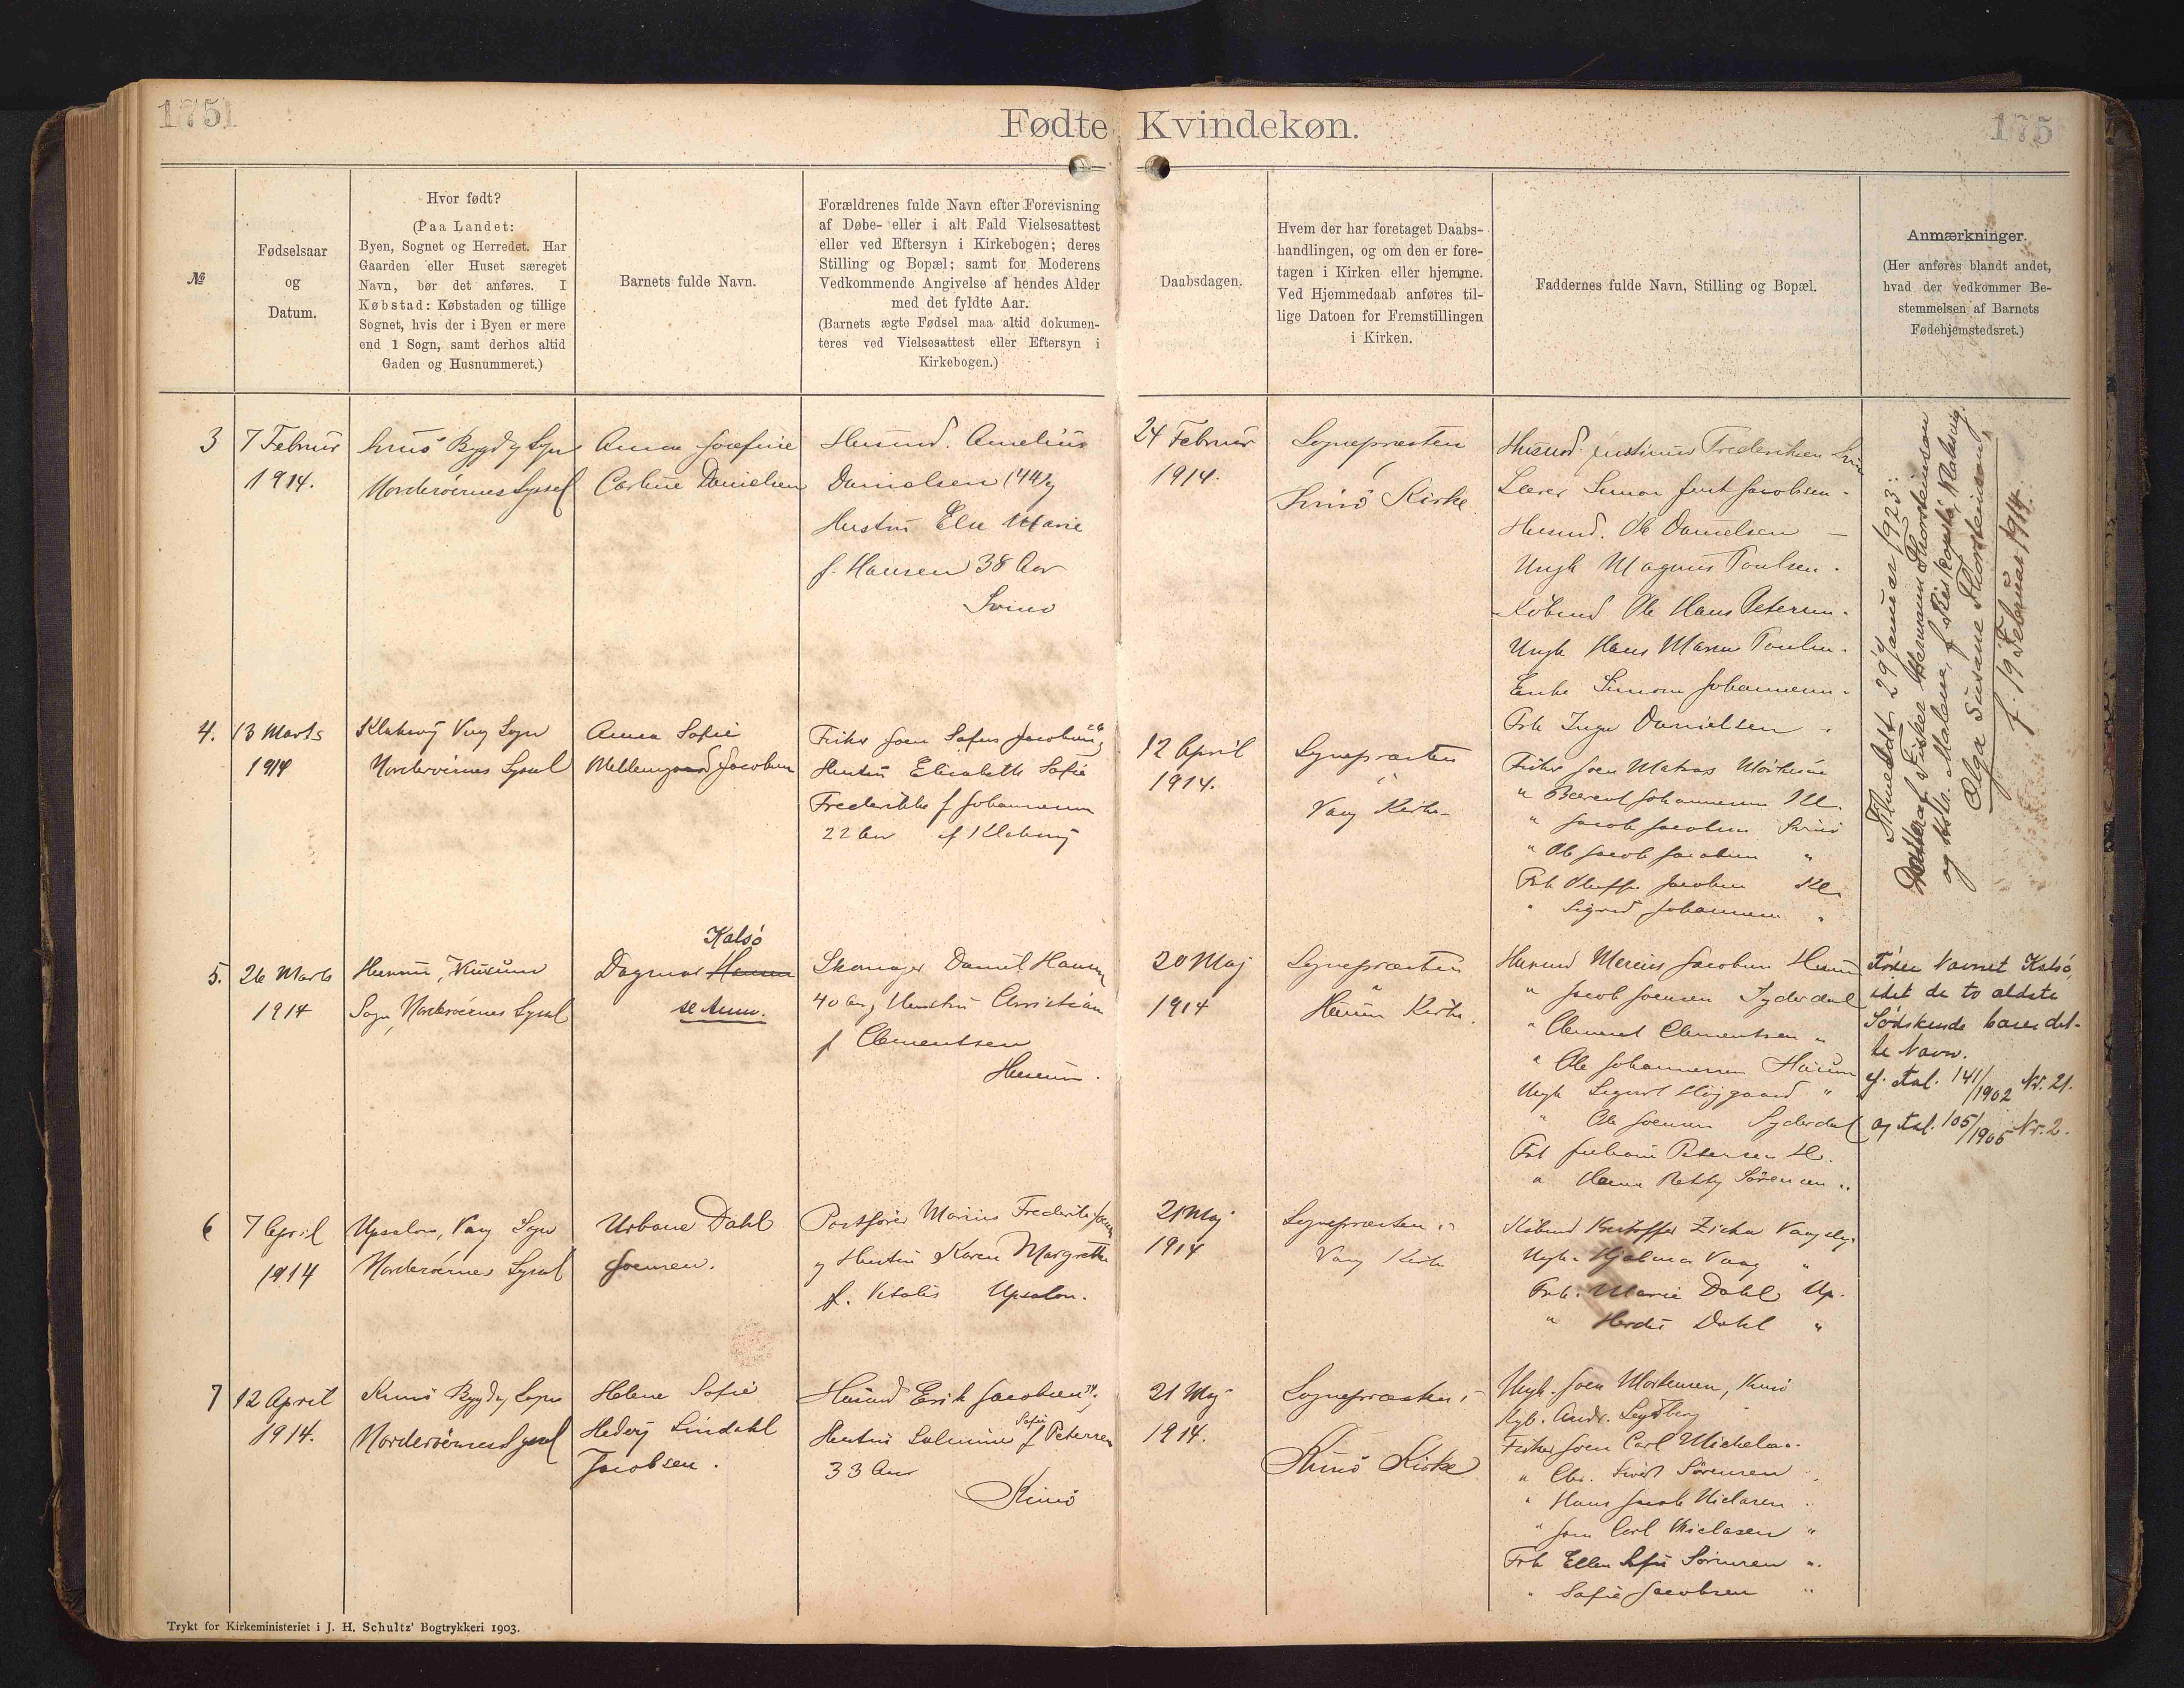 175
Fødte Kvindekøn.
175
№
Fødselsaar
og
Datum.
Hvor født?
(Paa Landet:
Byen, Sognet og Herredet. Har
Gaarden eller Huset særeget
Navn, bør det anføres. I
Købstad: Købstaden og tillige
Sognet, hvis der i Byen er mere
end 1 Sogn, samt derhos altid
Gaden og Husnummeret.)
Barnets fulde Navn.
Forældrenes fulde Navn efter Forevisning
af Døbe- eller i alt Fald Vielsesattest
eller ved Eftersyn i Kirkebogen; deres
Stilling og Bopæl; samt for Moderens
Vedkommende Angivelse af hendes Alder
med det fyldte Aar.
(Barnets ægte Fødsel maa altid dokumen-
teres ved Vielsesattest eller Eftersyn i
Kirkebogen.)
Daabsdagen.
Hvem der har foretaget Daabs-
handlingen, og om den er fore-
tagen i Kirken eller hjemme.
Ved Hjemmedaab anføres til-
lige Datoen for Fremstillingen
i Kirken.
Faddernes fulde Navn, Stilling og Bopæl.
Anmærkninger.
(Her anføres blandt andet,
hvad der vedkommer Be-
stemmelsen af Barnets
Fødehjemstedsret.)
3
7 Februar
1914.
Svinö Bygd og Sogn
Norderöernes Syssel
Anna Josefine
Carline Danielsen
Husmd. Amelius
Danielsen og
Hustru Else Marie
f. Hansen 38 Aar
Svinö
24 Februar
1914.
Sognepræsten
Svinö Kirke
Lærer Simon Jacobsen
Husmd. Ole Danielsen
Ungk Magnus Poulsen
Købmd Ole Hans Petersen
Ungk Hans Poulsen
Enke Johannesen
Frk Inga Danielsen
Tilmeldt 29 Januar 1923:
Datter af Fisker Hermann Thorsteinsson
og Hst. Malene, f. Klaksvig
Olga Susanne Thorsteinsson
f. 19 Februar 1914.
4.
13 Marts
1914
Klaksvig Vaag Sogn
Norderöernes Syssel
Anna Sofie
Jacobsen
Fisker Joen Sofus Jacobsen
Hustru Elisabeth Sofie
Frederikke f Johannesen
22 Aar af Klaksvig
12 April
1914.
Sognepræsten
Vaag Kirke
Fisker Joen Matras
" Johannesen Kl.
" Jacob Jacobsen Svinö
" Ole Jacob Jacobsen "
Frk Jacobsen Kl.
" Sigrid Johannesen "
5.
26 Marts
1914
Husum, Kunø
Sogn, Norderöernes Syssel
Kalsö
Dagmar Hansen
se Anm.
Skomager Daniel Hansen
40 Aar, Hustru Christiane
f Clementsen
Husum.
20 Maj
1914
Sognepræsten
Husum Kirke.
Husmd Jacobsen Husum
" Jacob Joensen Syderdal
" Clement Clementsen "
" Ole Johannesen Husum
Ungk Sigurd Højgaard "
" Ole Joensen Syderdal
Frk Petersen H.
" Hanna Betty Sörensen "
Fører Navnet Kalsö,
idet de to ældste
Södskende bærer det-
te Navn.
cf. Fol. 141/1902 Nr. 21.
og Fol. 105/1905 Nr. 2.
6
7 April
1914
Upsalon, Vaag Sogn
Norderöernes Syssel
Urbane Dahl
Joensen.
Postfører Marius Frederik Joensen
og Hustru Karen Margrethe
f. Vitalis Upsalon.
21 Maj
1914
Sognepræsten
Vaag Kirke
Købmd Kristoffer
Ungk. Hjalmar Vaag "
Frk. Marie Dahl Up.
" Herdis Dahl "
7
12 April
1914.
Kunö Bygd og Sogn
Norderöernes Syssel
Helene Sofie
Hedvig Lindahl
Jacobsen.
Husmd Erik Jacobsen
Hustru Sofie f Petersen
33 Aar
Kunö
21 Maj
1914.
Sognepræsten
Kunö Kirke
Ungk. Joen Mortensen, Kunö
Fisker Joen Carl
" Chr. Sörensen
" Hans Jacob
" Joen Carl "
Frk Ellen Sofie Sörensen "
" Sofie Jacobsen "
Trykt for Kirkeministeriet i J. H. Schultz' Bogtrykkeri 1903.